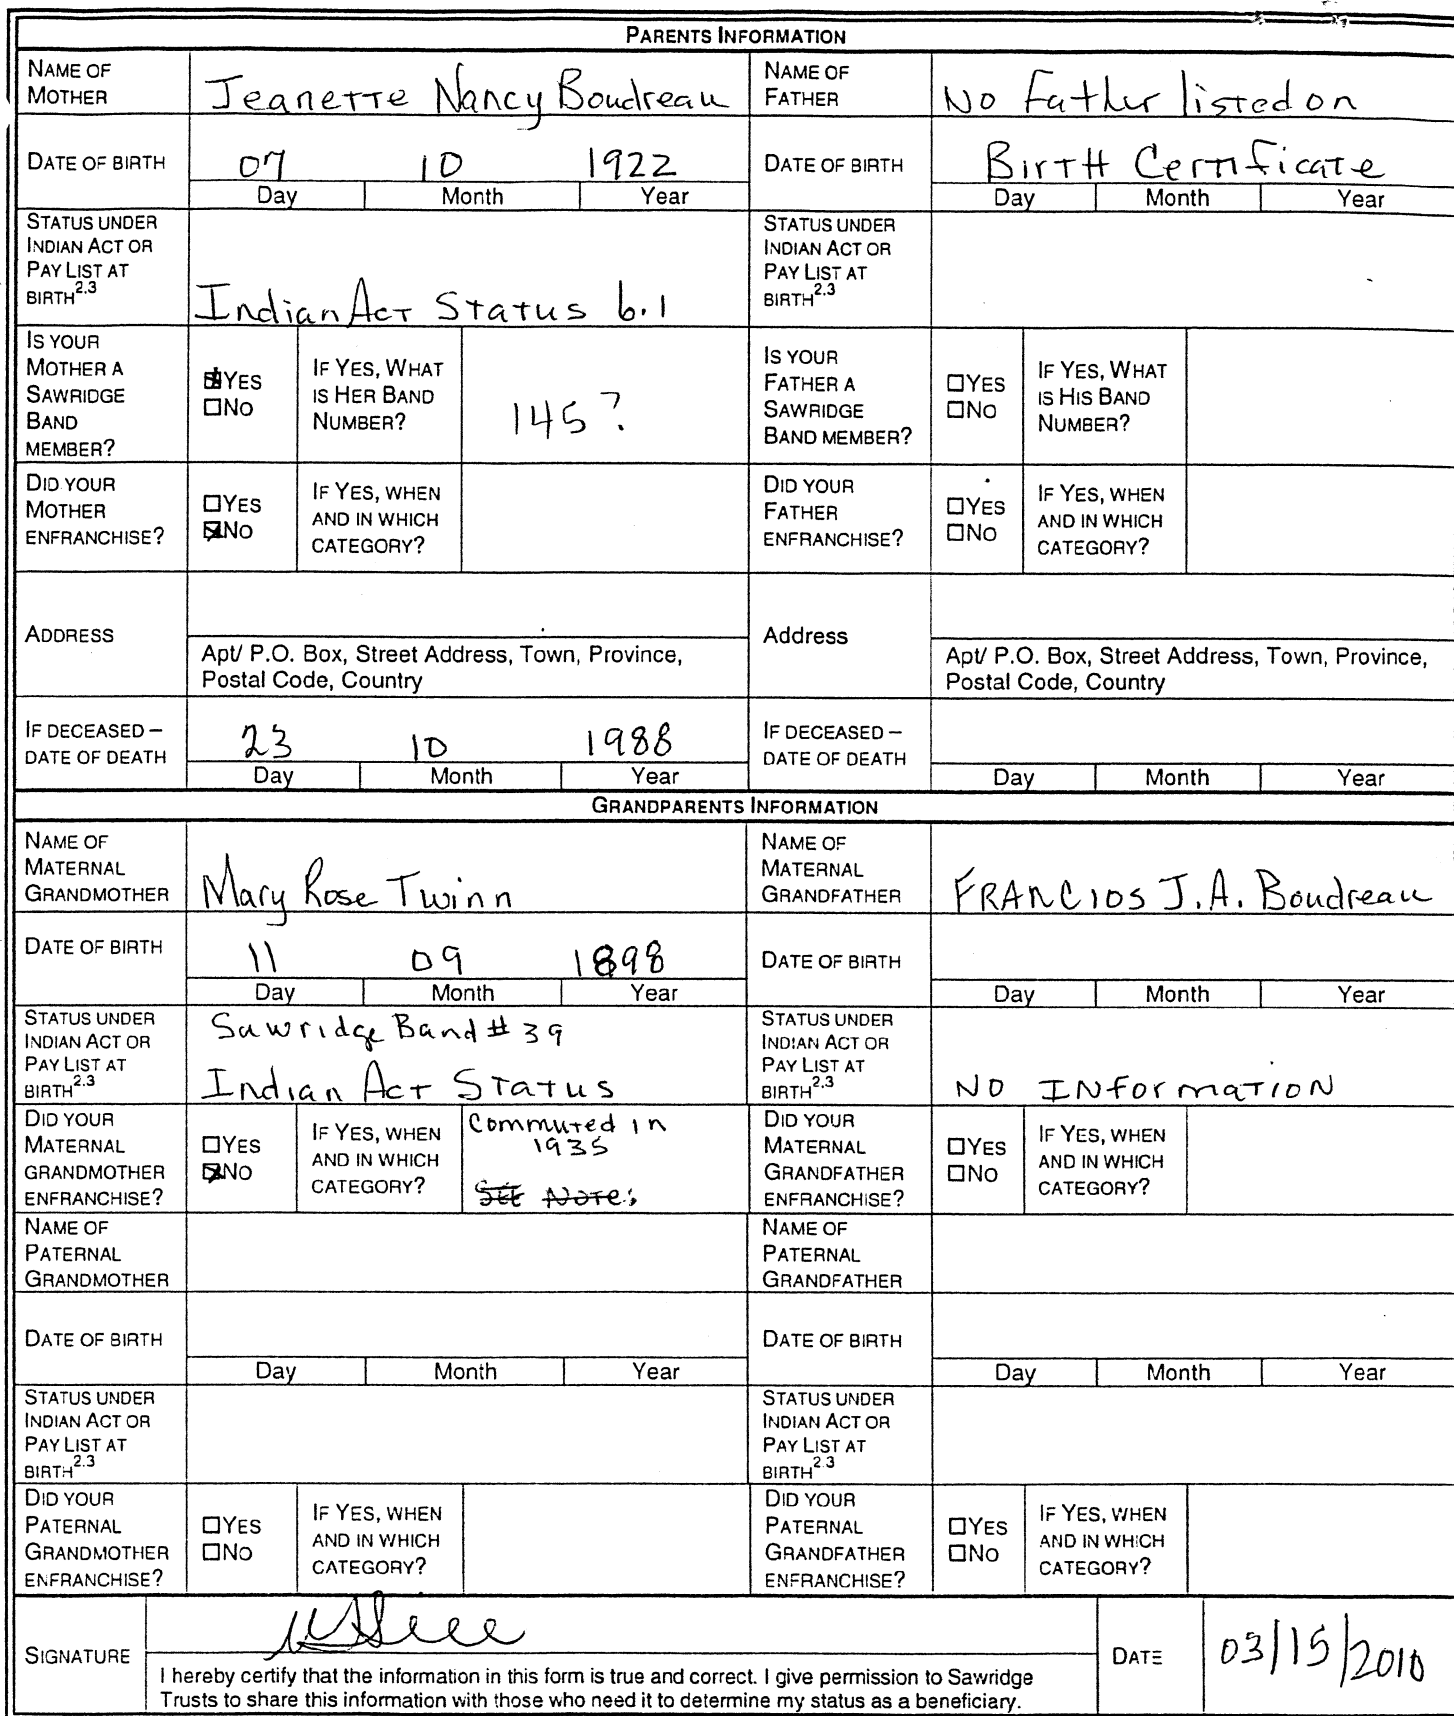 PARENTS INFORMATION
NAME OF MOTHER Jeanette Nancy Boudreau NAME OF FATHER No Father listed on
DATE OF BIRTH 07 10 1922 DATE OF BIRTH Birth Certificate
Day Month Year Day Month Year
STATUS UNDER INDIAN ACT OR PAY LIST AT BIRTH2.3 Indian Act Status 6.1 STATUS UNDER INDIAN ACT OR PAY LIST AT BIRTH2.3
IS YOUR MOTHER A SAWRIDGE BAND MEMBER? ☒YES ☐NO IF YES, WHAT IS HER BAND NUMBER? 145? IS YOUR FATHER A SAWRIDGE BAND MEMBER? ☐YES ☐NO IF YES, WHAT IS HIS BAND NUMBER?
DID YOUR MOTHER ENFRANCHISE? ☐YES ☒NO IF YES, WHEN AND IN WHICH CATEGORY? DID YOUR FATHER ENFRANCHISE? ☐YES ☐NO IF YES, WHEN AND IN WHICH CATEGORY?
ADDRESS Apt/ P.O. Box, Street Address, Town, Province, Postal Code, Country Address Apt/ P.O. Box, Street Address, Town, Province, Postal Code, Country
IF DECEASED – DATE OF DEATH 23 10 1988 IF DECEASED – DATE OF DEATH
Day Month Year Day Month Year
GRANDPARENTS INFORMATION
NAME OF MATERNAL GRANDMOTHER Mary Rose Twinn NAME OF MATERNAL GRANDFATHER FRANCIOS J.A. Boudreau
DATE OF BIRTH 11 09 1898 DATE OF BIRTH
Day Month Year Day Month Year
STATUS UNDER INDIAN ACT OR PAY LIST AT BIRTH2.3 Sawridge Band # 39 Indian Act Status STATUS UNDER INDIAN ACT OR PAY LIST AT BIRTH2.3 NO INformatION
DID YOUR MATERNAL GRANDMOTHER ENFRANCHISE? ☐YES ☒NO IF YES, WHEN AND IN WHICH CATEGORY? Commuted in 1935 See Note: DID YOUR MATERNAL GRANDFATHER ENFRANCHISE? ☐YES ☐NO IF YES, WHEN AND IN WHICH CATEGORY?
NAME OF PATERNAL GRANDMOTHER NAME OF PATERNAL GRANDFATHER
DATE OF BIRTH DATE OF BIRTH
Day Month Year Day Month Year
STATUS UNDER INDIAN ACT OR PAY LIST AT BIRTH2.3 STATUS UNDER INDIAN ACT OR PAY LIST AT BIRTH2.3
DID YOUR PATERNAL GRANDMOTHER ENFRANCHISE? ☐YES ☐NO IF YES, WHEN AND IN WHICH CATEGORY? DID YOUR PATERNAL GRANDFATHER ENFRANCHISE? ☐YES ☐NO IF YES, WHEN AND IN WHICH CATEGORY?
SIGNATURE DATE 03/15/2010
I hereby certify that the information in this form is true and correct. I give permission to Sawridge
Trusts to share this information with those who need it to determine my status as a beneficiary.